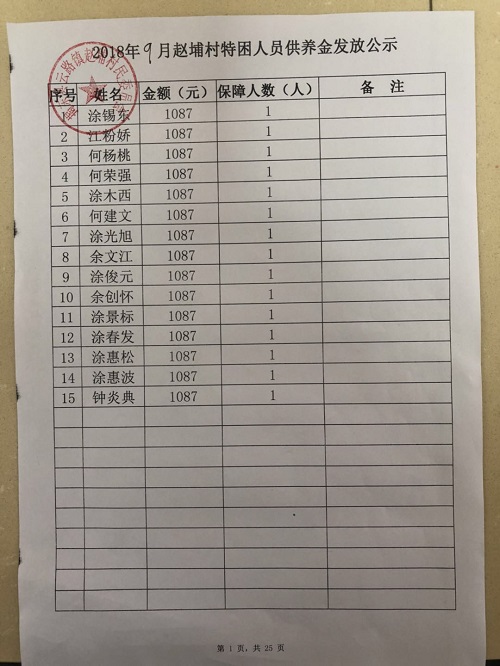 2018年9月赵埔村特困人员供养金发放公示
云路镇赵埔村民委员会
序号 姓名 金额（元） 保障人数（人） 备 注
1 涂锡东 1087 1
2 江粉娇 1087 1
3 何杨桃 1087 1
4 何荣强 1087 1
5 涂木西 1087 1
6 何建文 1087 1
7 涂光旭 1087 1
8 余文江 1087 1
9 涂俊元 1087 1
10 余创怀 1087 1
11 涂景标 1087 1
12 涂春发 1087 1
13 涂惠松 1087 1
14 涂惠波 1087 1
15 钟炎典 1087 1
第 1 页，共 25 页